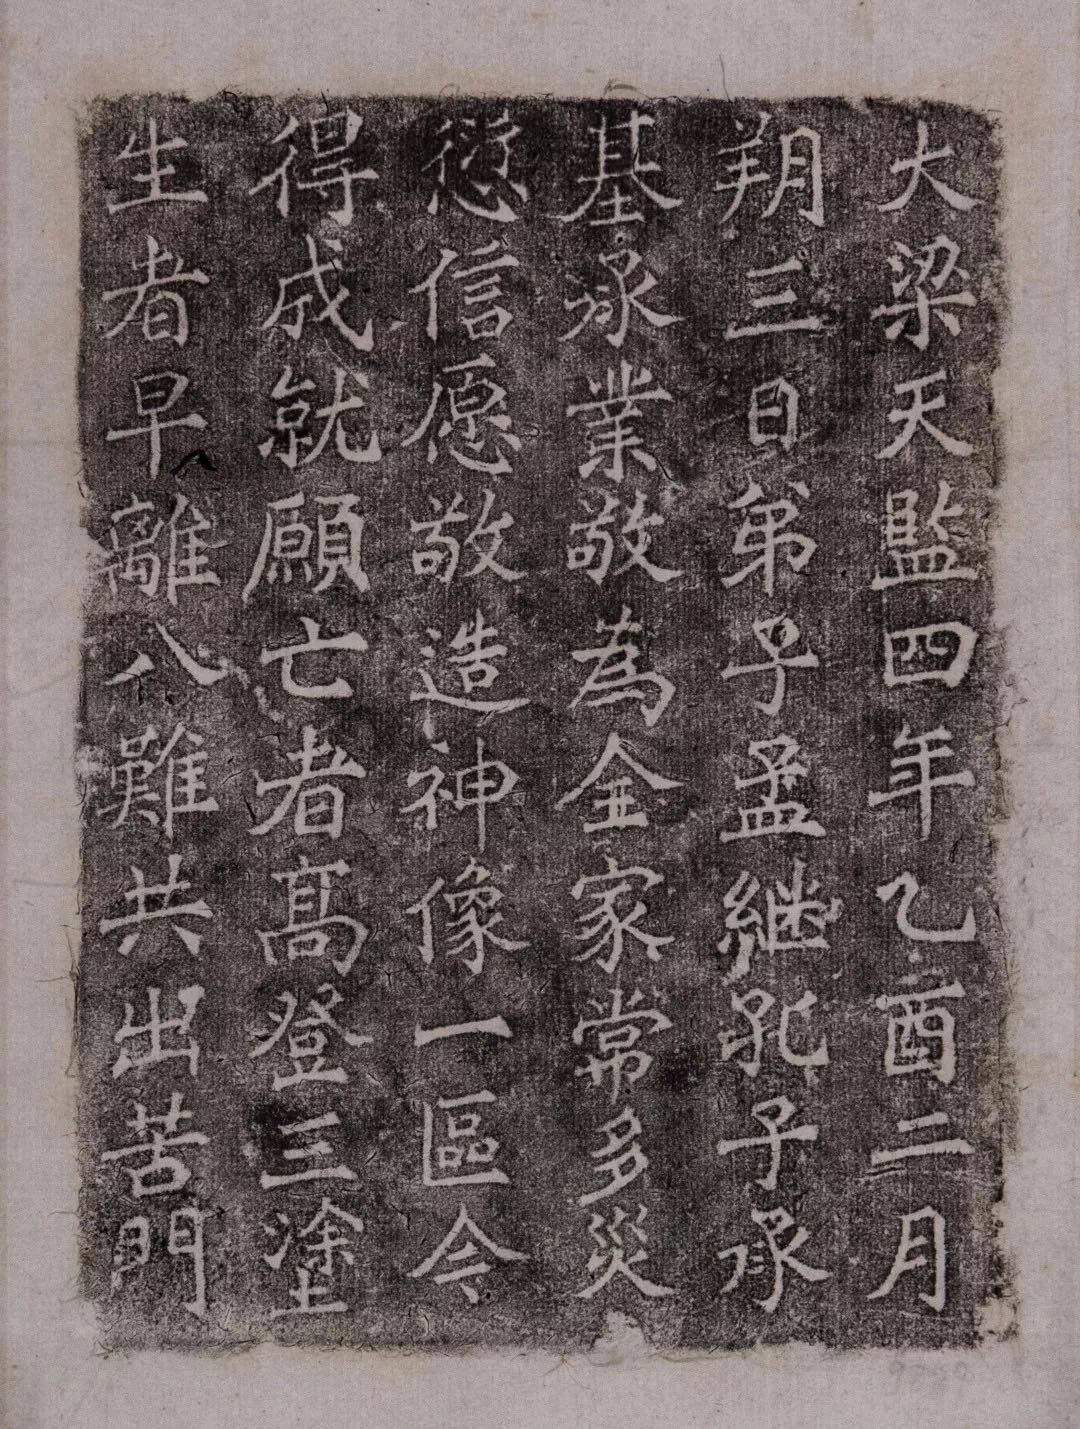 大梁天監四年乙酉二月
朔三日弟子孟継孔子承
基承業敬為全家常多災
愆信愿敬造神像一區今
得成就願亡者高登三塗
生者早離八難共出苦門